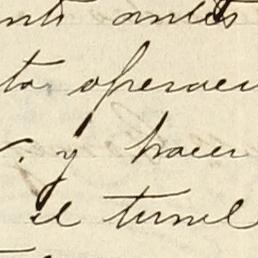 nte antes
to operaci
. y hacer
el tunel